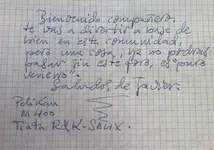 Bienvenido compañero,
te vas a divertir a base de
bien en esta comunidad,
pero una cosa, ya no podras
pasar sin este foro, es "puro
veneno".
Saludos de Javier.
Pelikan
M 400
Tinta R&K-SALIX.